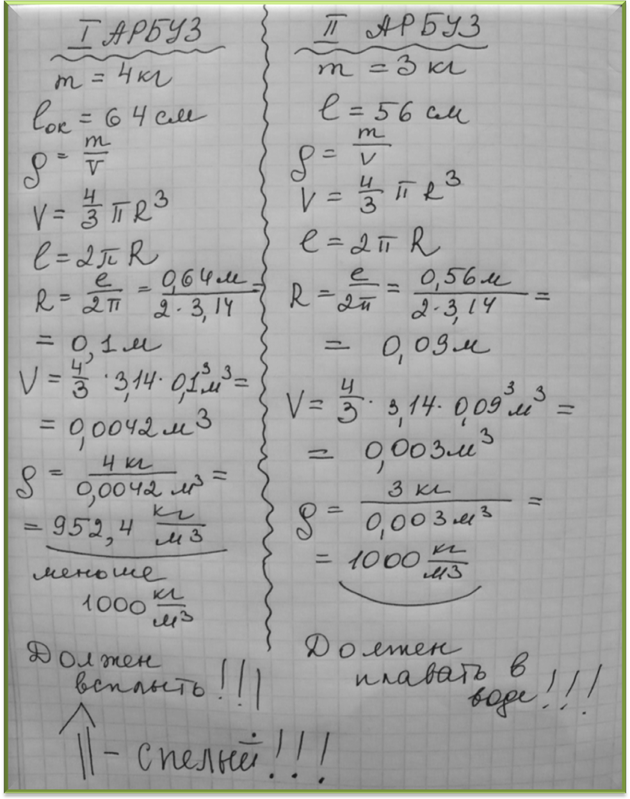 I АРБУЗ
m = 4 кг
lок = 64 см
ρ = m/V
V = 4/3 π R³
l = 2π R
R = l/2π = 0,64 м/2·3,14 =
= 0,1 м
V = 4/3 · 3,14 · 0,1³ м³ =
= 0,0042 м³
ρ = 4 кг/0,0042 м³ =
= 952,4 кг/м³
меньше
1000 кг/м³
Должен
всплыть!!!
|| - спелый!!!
II АРБУЗ
m = 3 кг
l = 56 см
ρ = m/V
V = 4/3 π R³
l = 2π R
R = l/2π = 0,56 м/2·3,14 =
= 0,09 м
V = 4/3 · 3,14 · 0,09³ м³ =
= 0,003 м³
ρ = 3 кг/0,003 м³ =
= 1000 кг/м³
Должен
плавать в
воде!!!